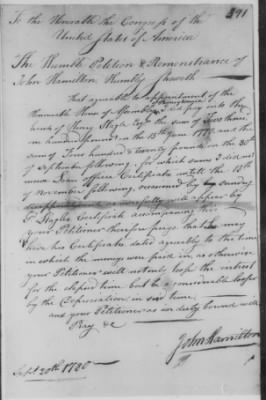 391
To the Honorable the Congress of the
United States of America
The Humble Petition & Remonstrance of
John Hamilton Humbly Sheweth
That agreable to appointment of the
Honorable House of Assembly of Pennsylvania did pay into the
hands of Henry Slagle Esqr the sum of Two thous.
hundred pound on the 13th June 1777, and the
sum of Four hundred & twenty pounds on the 30th
of September following, for which sums I did not
Loan office Certificate untill the 13th
of November following, occasioned by
as will fully appear by
Slagles Certificate accompanying this
your Petitioner therefore prays that he may
have his Certificates dated agreably to the time
in which the moneys were paid in, as otherwise
your Petitioner will not only loose the interest
for the elapsed time but be a considerable looser
by the Depreciation in said time.
and your Petitioner as in duty bound will
Pray &c
John Hamilton
Sept 20th 1780